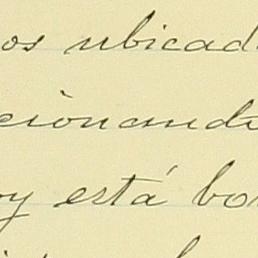 os ubicad
cionando
oy está bo